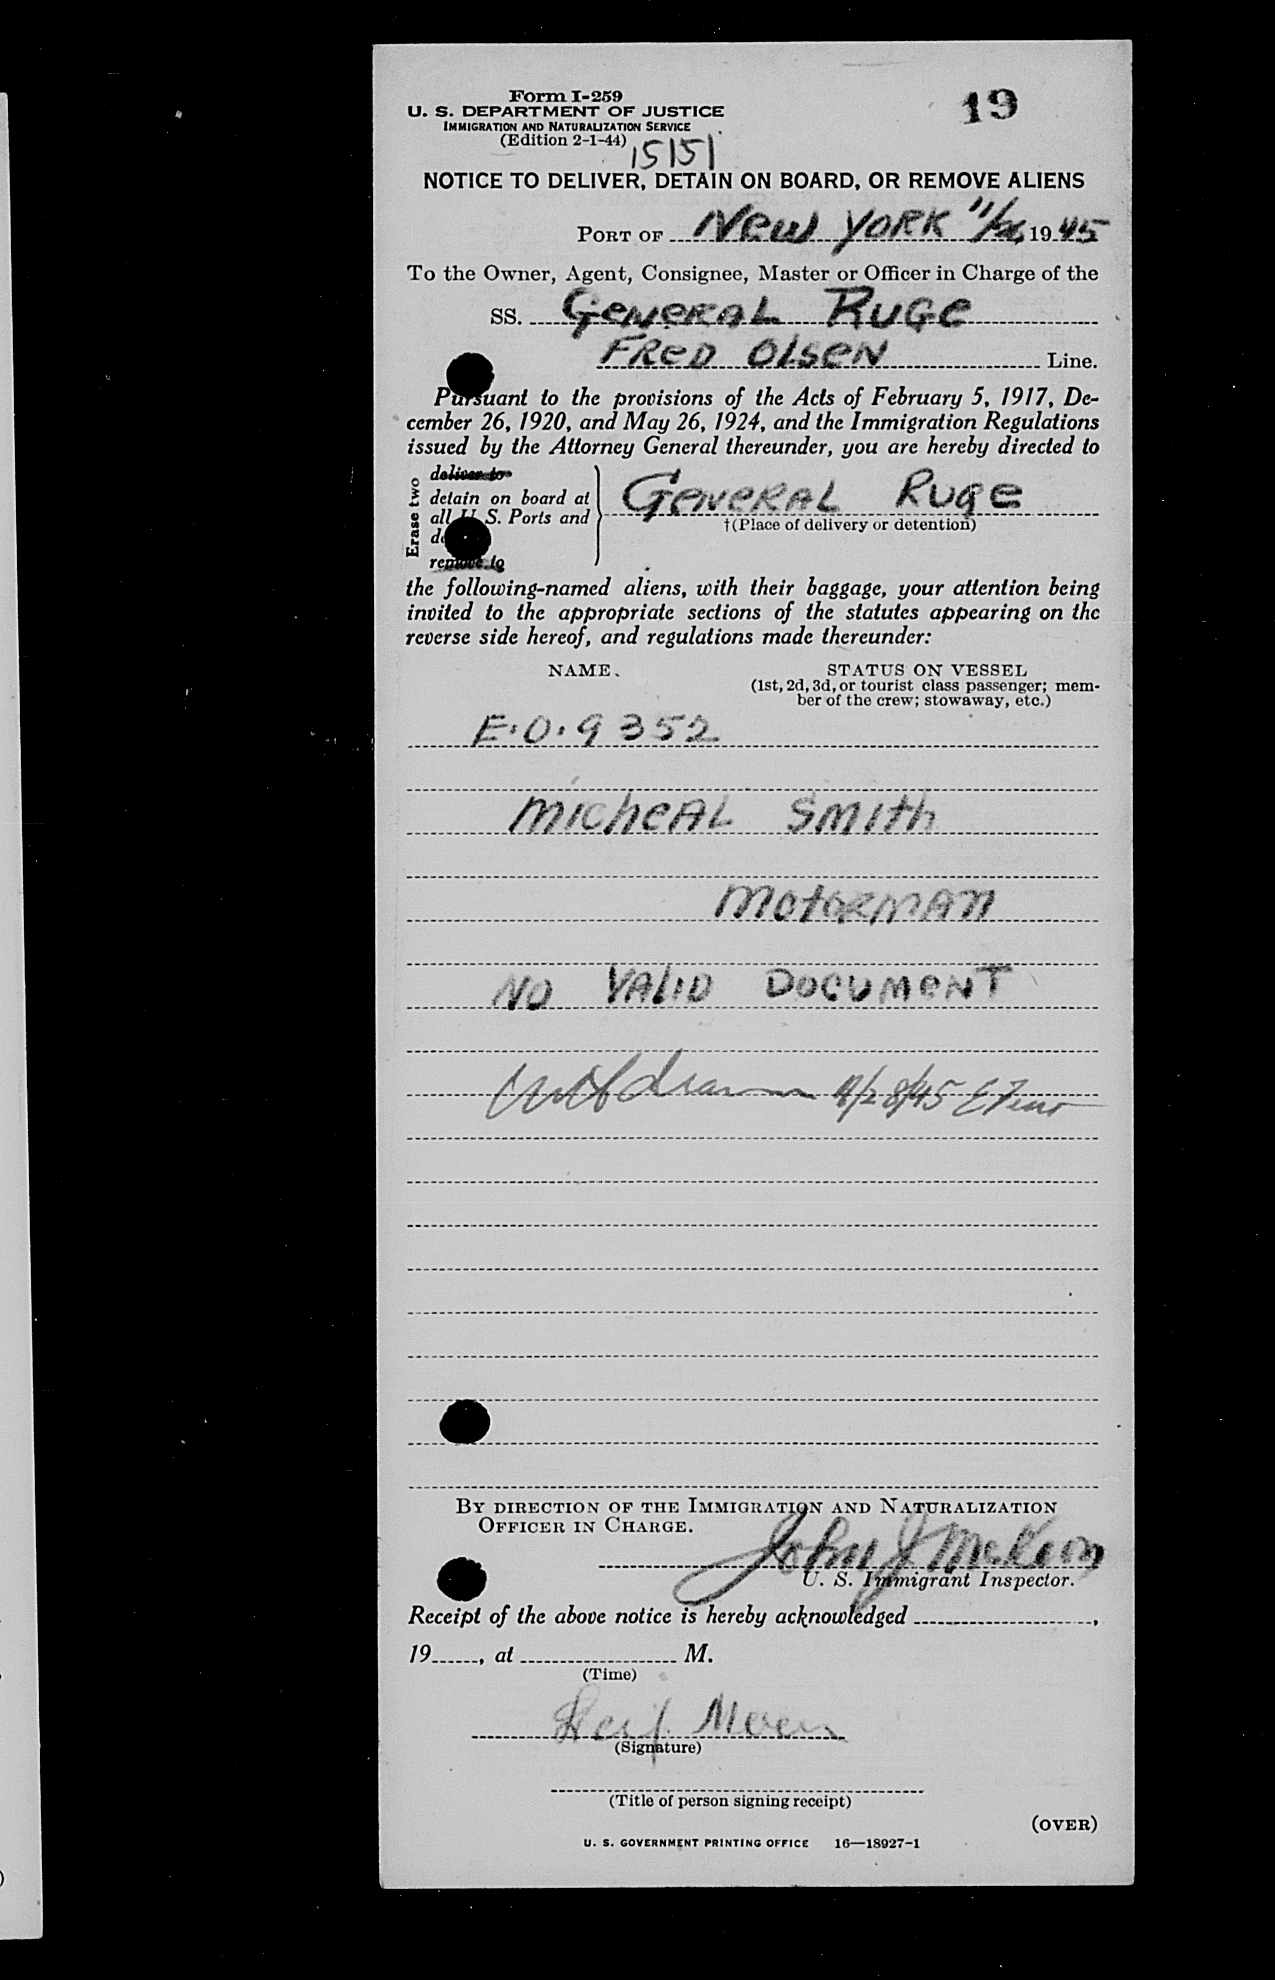 Form I-259
19
U. S. DEPARTMENT OF JUSTICE
IMMIGRATION AND NATURALIZATION SERVICE
(Edition 2-1-44)
15151
NOTICE TO DELIVER, DETAIN ON BOARD, OR REMOVE ALIENS
PORT OF New York 11/ , 1945
To the Owner, Agent, Consignee, Master or Officer in Charge of the
SS. General Ruge
Fred Olsen Line.
Pursuant to the provisions of the Acts of February 5, 1917, De-
cember 26, 1920, and May 26, 1924, and the Immigration Regulations
issued by the Attorney General thereunder, you are hereby directed to
Erase two
deliver to
detain on board at
all U. S. Ports and
remove to
General Ruge
†(Place of delivery or detention)
the following-named aliens, with their baggage, your attention being
invited to the appropriate sections of the statutes appearing on the
reverse side hereof, and regulations made thereunder:
NAME. STATUS ON VESSEL
(1st, 2d, 3d, or tourist class passenger; mem-
ber of the crew; stowaway, etc.)
E.O. 9352
Micheal Smith
Motorman
No Valid Document
Withdrawn 11/28/45
BY DIRECTION OF THE IMMIGRATION AND NATURALIZATION
OFFICER IN CHARGE.
John J McKeon
U. S. Immigrant Inspector.
Receipt of the above notice is hereby acknowledged ,
19 , at M.
(Time)
Leif Moen
(Signature)
(Title of person signing receipt)
(OVER)
U. S. GOVERNMENT PRINTING OFFICE 16—18927-1